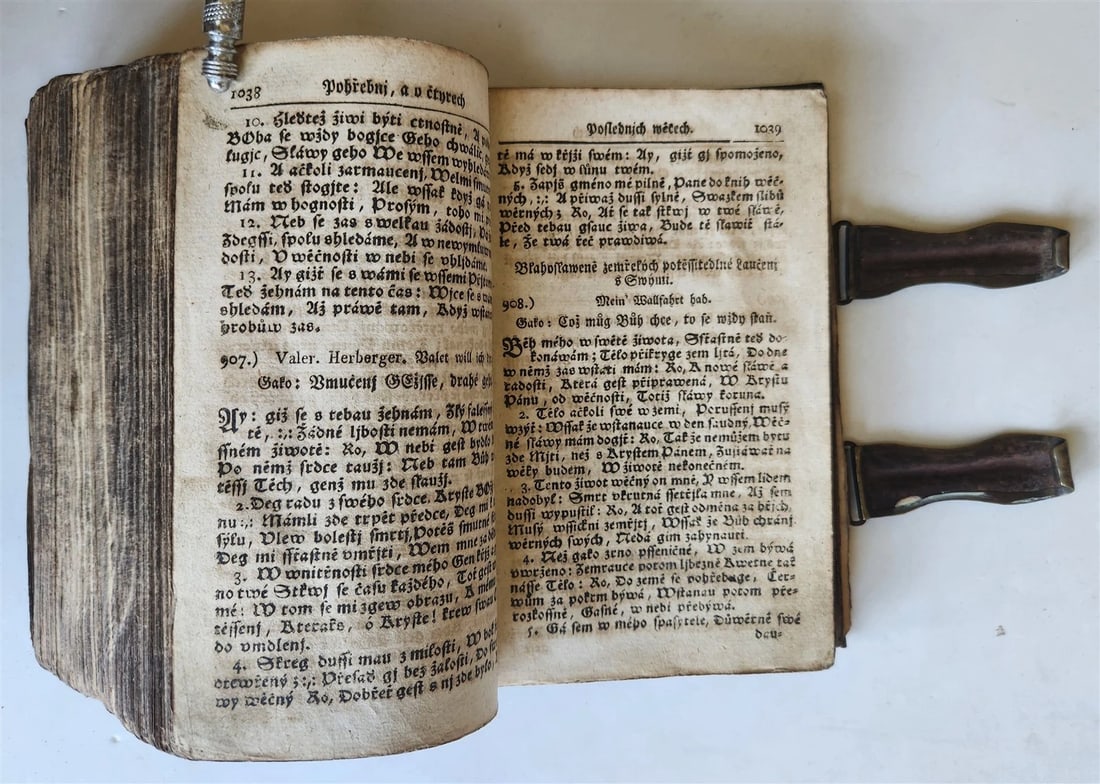 1038 Pohřebnj, a v čtyrech
10. Hleďtež žiwi býti ctnostně, A
BOha se wždy bogjce Geho chwálic,
kugjc, Sláwy geho We wssem
11. A ačkoli zarmaucenj, Welmi
spolu teď stogjte: Ale wssak když gá
Mám w hognosti, Prosým, toho
12. Neb se zas s welkau žádostj,
Zdegssi, spolu shledáme, A w
dosti, V wěčnosti w nebi se vbljdáme.
13. Ay gižť se s wámi se wssemi
Teď žehnám na tento čas: Wjce se s
shledám, Až práwě tam, Když
hrobůw zas.
907.) Valer. Herberger. Valet will ich
Gako: Vmučenj GEžjsse, drahé
Ay: giž se s tebau žehnám, Zlý
tě, :,: Žádné ljbosti nemám, W
ssném žiwotě: Ro, W nebi gest bydlo
Po němž srdce taužj: Neb tam Bůh
těssj Těch, genž mu zde slaužj.
2. Deg radu z swého srdce, Kryste
nu:,: Mámli zde trpět předce, Deg mi
sýlu, Vlew bolestj smrtj, Potěš smutné
Deg mi sstastně vmřjti, Wem mne
3. W wnitěnosti srdce mého Gen
no twé Stkwj se času každého, Toť gest
mé: W tom se mi zgew obrazu, K
těssenj, Kteraks, ó Kryste! krew
do vmdlenj.
4. Skreg dussi mau z milosti, W
otewřený z :,: Přesaď gj bez žalosti, Do
wy wěčný Ro, Dobřeť gest s nj zde
Poslednjch wěcech. 1039
tě má w křjži swém: Ay, gižť gj spomoženo,
Když sedj w lůnu twém.
5. Zapjš gméno mé pilně, Pane do knih wěč-
ných, :,: A přiwaž dussi sylně, Swazkem slibů
wěrných z Ro, Ať se tak stkwj w twé sláwě,
Před tebau gsauc žiwa, Bude tě slawit stá-
le, Že twá řeč prawdiwá.
Blahoslaweně zemřelých potěssitedlné Laučenj
s Swými.
908.) Mein' Wallfahrt hab.
Gako: Což můg Bůh chce, to se wždy staň.
Běh mého w swětě žiwota, Sstastně teď do-
konáwám; Tělo přikryge zem ljtá, Do dne
w němž zas wstáti mám: Ro, K nowé sláwě a
radosti, Která gest připrawená, W Krystu
Pánu, od wěčnosti, Totiž sláwy koruna.
2. Tělo ačkoli swé w zemi, Porussenj musý
wzýt: Wssak že wstanauce w den saudný, Wěč-
né sláwy mám dogjt: Ro, Tak že nemůžem bytu
zde Mjti, než s Krystem Pánem,
wěky budem, W žiwotě nekonečném.
3. Tento žiwot wěčný on mně, Y wssem lidem
nadobyl: Smrt vkrutná ssetřjla mne, Až sem
dussi wypustil: Ro, A toť gest odměna za hřjch,
Musý wssickni zemřjti, Wssak že Bůh chránj
wěrných swých, Nedá gim zahynauti.
4. Než gako zrno psseničné, W zem býwá
vwrženo: Zemrauce potom ljbezně Kwetne též
násse Tělo: Ro, Do země se pohřebuge, Čer-
wům za pokrm býwá, Wstanau potom pře-
rozkossné, Gasné, w nebi přebýwá.
5. Gá sem w mého spasytele, Důwěrně swé
dau-